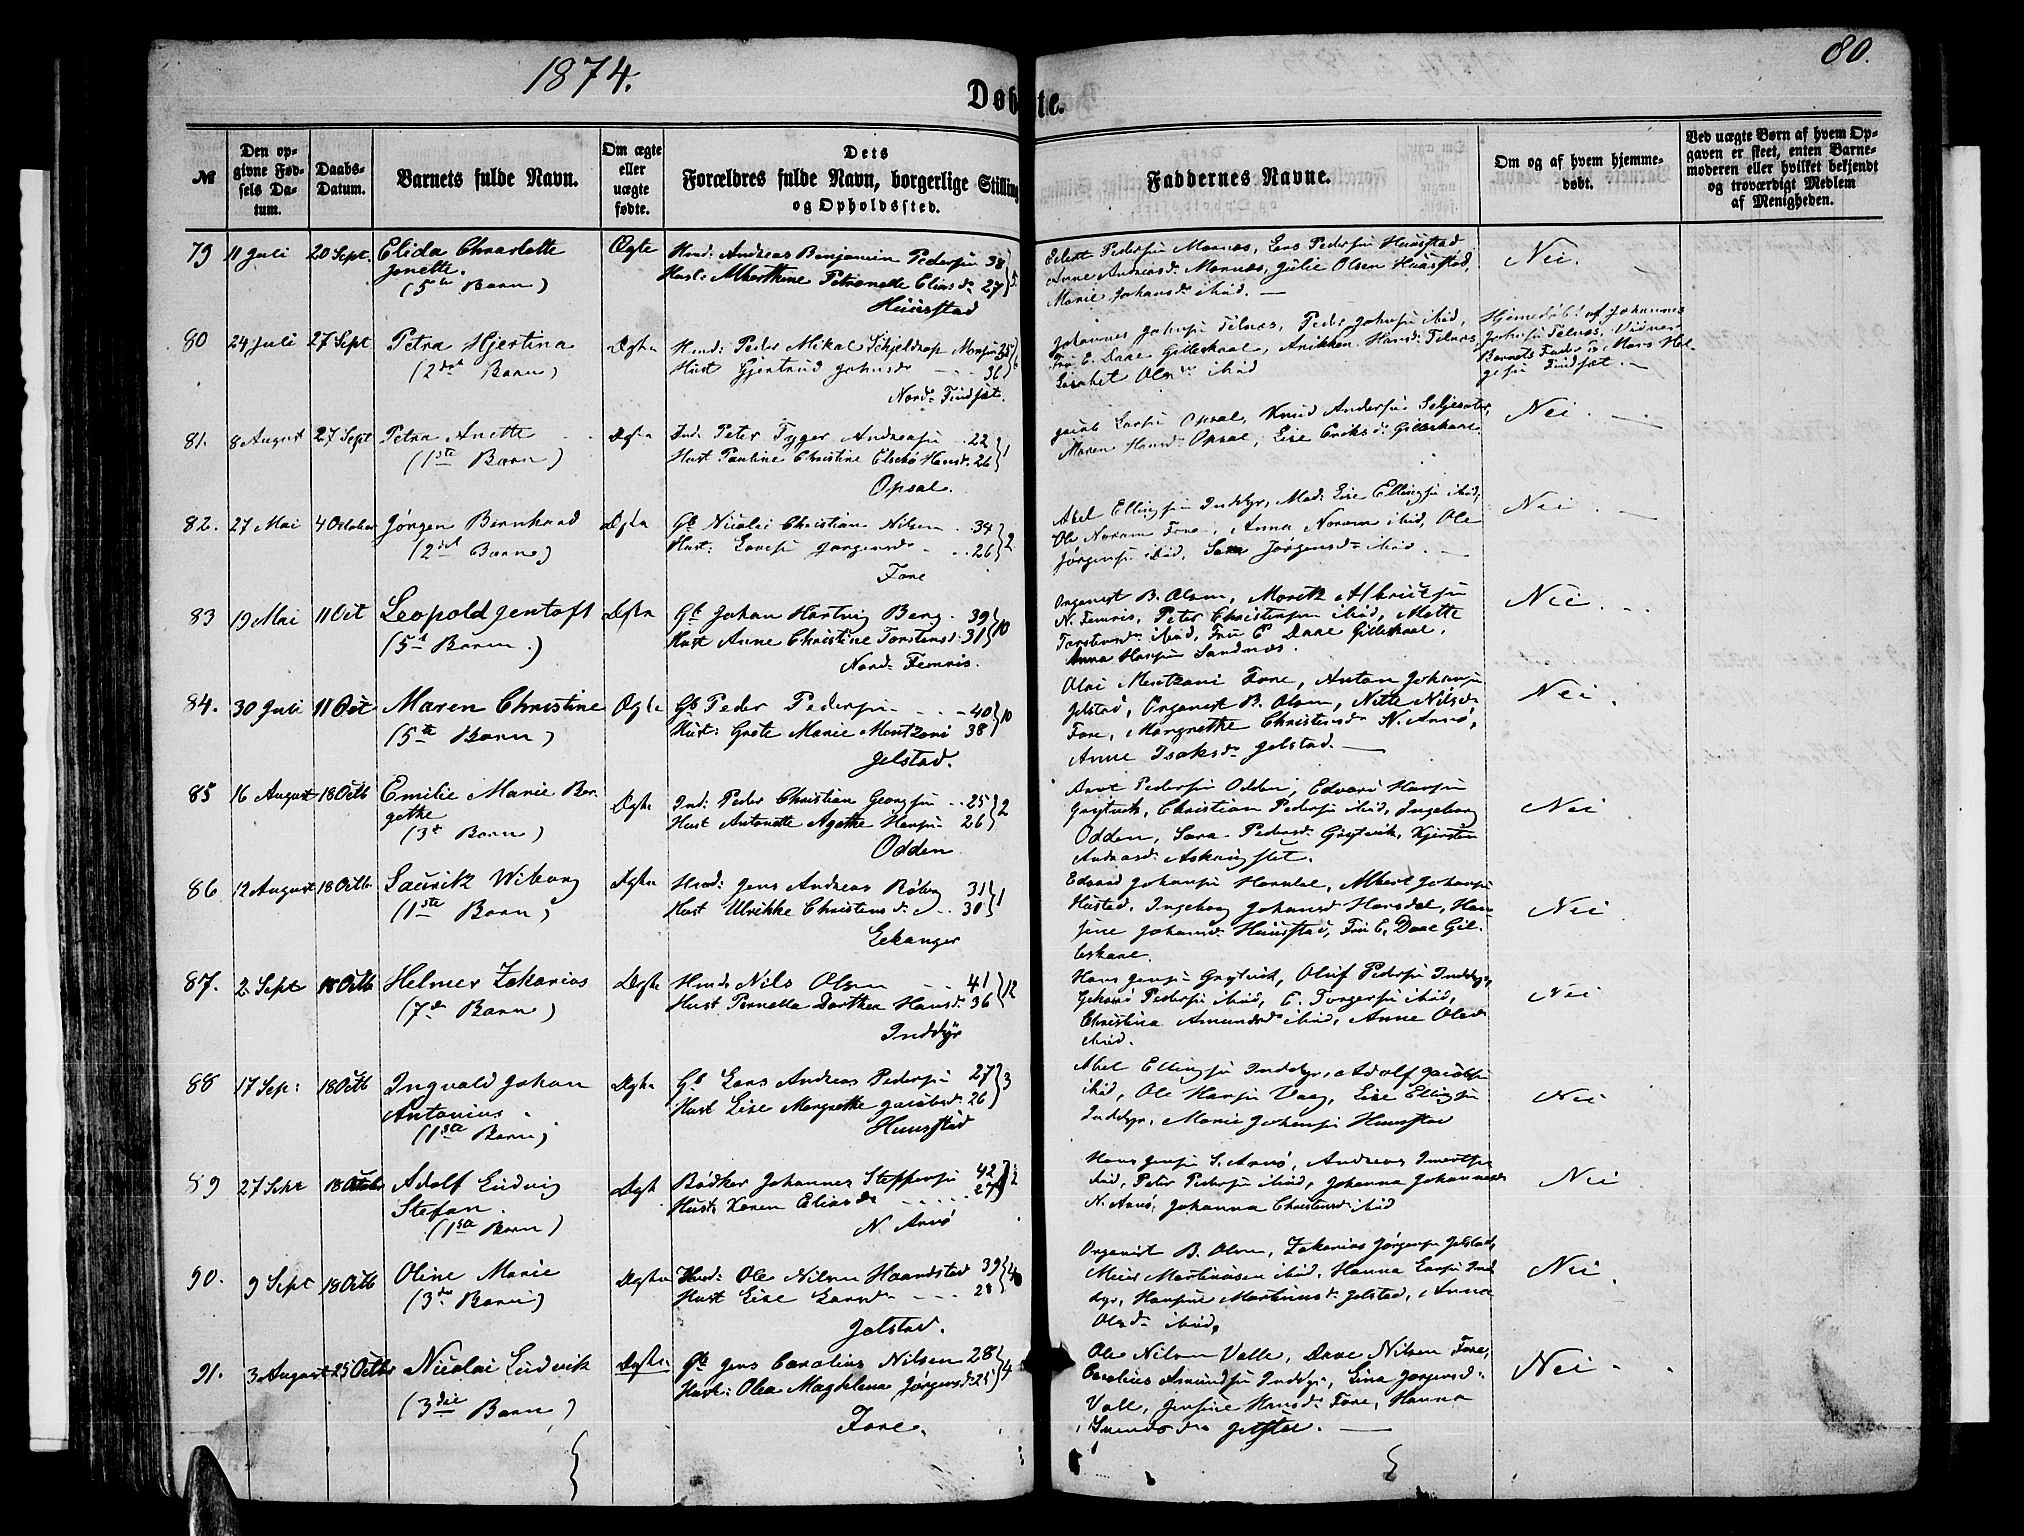 1874.
80.
Døbte.
№
Den opgivne Fødsels Datum.
Daabs-Datum.
Barnets fulde Navn.
Om ægte eller uægte fødte.
Dets Forældres fulde Navn, borgerlige Stilling og Opholdssted.
Faddernes Navne.
Om og af hvem hjemmedøbt.
Ved uægte Børn af hvem Opgaven er skeet, enten Barnemoderen eller hvilket bekjendt og troværdigt Medlem af Menigheden.
79 11 Juli 20 Sept. Elida Charlotte Ægte Hmd: Andreas Benjamin Pedersen 38
Jonette. Hust: Alberthine Petronelle Eliasd: 27
(5te Barn) Huusstad
Pedersen Mornæs, Lars Pedersen Huusstad
Anne Andreasd: Mornæs, Julie Olsen Huusstad,
Marie Johansd: ibid. —
Nei.
80 24 Juli 27 Sept Petra Hjertina Ægte Hmd: Peder Mikal Schjeldrop 35
(2det Barn) Hust Gjertrud Johnsd: 36
Nord: Findset.
Johannes Johnsen Telnæs, Peder Johnsen ibid,
Fru E. Daae Gilleskaal, Anikken Hansd: Telnæs,
Olsen ibid
Hjemmedøbt af Johannes
Johnsen Telnæs, Vidner
Barnets Fader og Hans Hel-
gesen Findset. —
81. 8 August 27 Sept Petra Anette Ægte Ind: Peter Tyger Andreasen 22
(1ste Barn) Hust Pauline Christine Hansd: 26 1
Opsal.
Jacob Larsen Opsal, Knud Andersen
Maren Hansd: Opsal, Lise Eriksd: Gilleskaal.
Nei. —
82. 27 Mai 4 October Jørgen Bernhard Ægte Gb Nicolai Christian Nilsen 34
(2det Barn) Hust: Jørgensd: 26 2
Fore
Abel Ellingsen Inddyr, Mad: Lise Ellingsen ibid,
Ole Noram Fore, Anna Noram ibid, Ole
Jørgensen ibid, Jørgensd: ibid. —
Nei. —
83 19 Mai 11 Oct Leopold Jentoft Ægte Gb Johan Hartvig Berg 39
(5te Barn.) Hust Anne Christine Torstensd: 31 10
Nord: Femris.
Organist B. Olsen, Moritz Albrigtsen
N. Femris, Peter Christensen ibid, Mette
Torstensd: ibid, Fru E Daae Gilleskaal.
Anna Hansen Sandnæs.
Nei.
84. 30 Juli 11 Oct Maren Christine Ægte Gb Peder Pedersen 40
(5te Barn) Hust: Grete Marie Mentzoni 38 10
Jelstad.
Oloi Mentzoni Fore, Anton Johansen
Jelstad, Organist B. Olsen, Nille Nilsd:
Fore, Margrethe Christensd: N. Arnø,
Anne Isaksd: Jelstad. —
Nei.
85 16 August 18 Octb Emilie Marie Ber Ægte Ind: Peder Christian Georgsen 25
gethe Hust Antonette Agathe Hansen 26 2
(3die Barn) Odden
Arnt Pedersen Odden, Edvard Hansen
Grytvik, Christian Pedersen ibid, Ingeborg
Odden, Sara Pedersd: Grytvik, Kjersten
Andreasd:
Nei
86 12 August 18 Octb. Lauritz Wiborg Ægte Hmd: Jens Andreas 31
(1ste Barn) Hust Ulrikke Christensd: 30 1
Lekanger
Edvard Johansen Horsdal, Albert Johansen
Hustad, Ingeborg Johansd: Horsdal, Han-
sine Johansd: Huusstad, Fru E. Daae Gil-
leskaal.
Nei
87. 2 Sept 18 Octb Helmer Zakarias Ægte Hmd: Nils Olsen 41
(7de Barn) Hust Pernella Dorthea Hansd: 36 12
Inddyr
Hans Jensen Grytvik, Oluf Pedersen Inddyr,
Pedersen ibid, E. Torgersen ibid,
Christina Amundsd: ibid, Anne Olsd:
ibid.
Nei
88 17 Sep: 18 Octb Ingvald Johan Ægte Gb Lars Andreas Pedersen 27
Antonius. Hust Lise Margrethe Jacobsd: 26 3
(1ste Barn) Huusstad
Abel Ellingsen Inddyr, Adolf Jacobsen
ibid, Ole Hansen Vaag, Lise Ellingsen
Inddyr, Marie Johansen Huusstad
Nei
89 27 Sept 18 Octbr Adolf Ludvig Ægte Bødker Johannes Steffensen 42
Stefan. Hust: Karen Eliasd: 27 2
(1ste Barn) N. Arnø
Hans Jensen S. Arnø, Andreas
ibid, Peter Pedersen ibid, Johanna Johannesd:
N. Arnø, Johanna Christensd: ibid
Nei
90. 9 Sept 18 Octb Oline Marie Ægte Hmd: Ole Nilsen Haandstad 39
(3die Barn) Hust Lise Larsd: 28
Jelstad.
Organist B. Olsen, Zakarias Jørgensen Jelstad,
Meier Martinusen ibid, Hanna Larsen Ind
dyr, Hansine Martinusd: Jelstad, Anna
Olsd: ibid.
Nei.
91. 3 August 25 Octbr Nicolai Ludvik Ægte Gb Jens Carolius Nilsen 28
(3die Barn) Hust: Olea Magdelena Jørgensd: 25 4
Fore.
Ole Nilsen Valle, Nilsen Fore,
Carolius Amundsen Inddyr, Lina Jørgensd:
Valle, Jensine Hansd: Fore, Hanna
Jelstad. —
Nei.